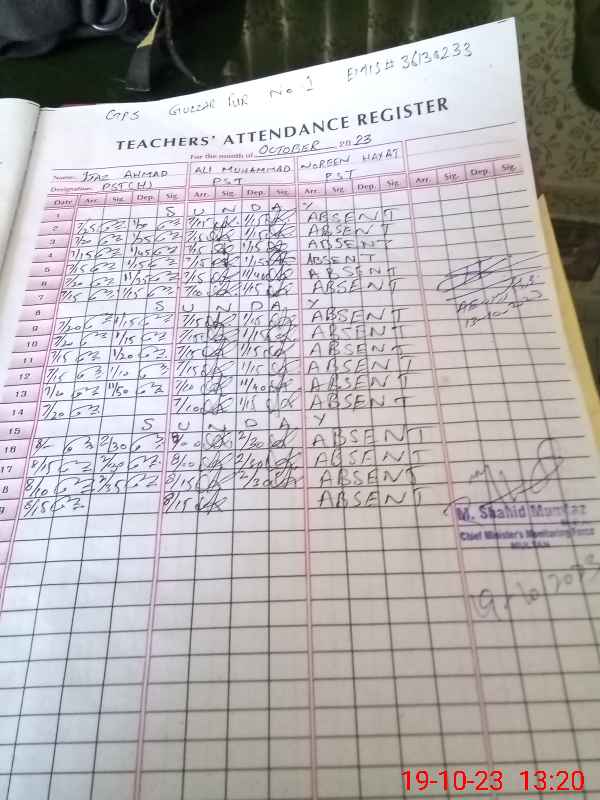 GPS GULZAR PUR No 1 EMIS # 36130233
TEACHERS' ATTENDANCE REGISTER
For the month of OCTOBER 2023
Name: IJAZ AHMAD ALI MUHAMMAD NOREEN HAYAT
Designation: PST(H) PST PST
Date Arr. Sig. Dep. Sig. Arr. Sig. Dep. Sig. Arr. Sig. Dep. Sig. Arr. Sig. Dep. Sig.
1 S U N D A Y
2 7/15 7/15 1/15 ABSENT
3 7/20 7/15 1/15 ABSENT
4 7/15 1/45 7/15 1/15 ABSENT
5 7/15 7/15 1/15 ABSENT
6 7/20 11/55 7/15 11/40 ABSENT
7 7/15 1/15 7/10 1/15 ABSENT
8 S U N D A Y
9 7/20 1/15 7/15 1/15 ABSENT
10 7/20 1/15 7/15 1/15 ABSENT
11 7/15 1/20 7/15 1/15 ABSENT
12 7/15 1/10 7/15 1/15 ABSENT
13 7/20 11/50 7/10 11/40 ABSENT
14 7/20 7/10 1/15 ABSENT
15 S U N D A Y
16 8/- 2/30 8/00 2/30 ABSENT
17 8/15 8/10 ABSENT
8 8/10 2/35 8/15 2/30 ABSENT
9 8/15 8/15 ABSENT
M. Shahid Mumtaz
Chief Minister's Monitoring Force
MULTAN
19-10-2023
19-10-23 13:20